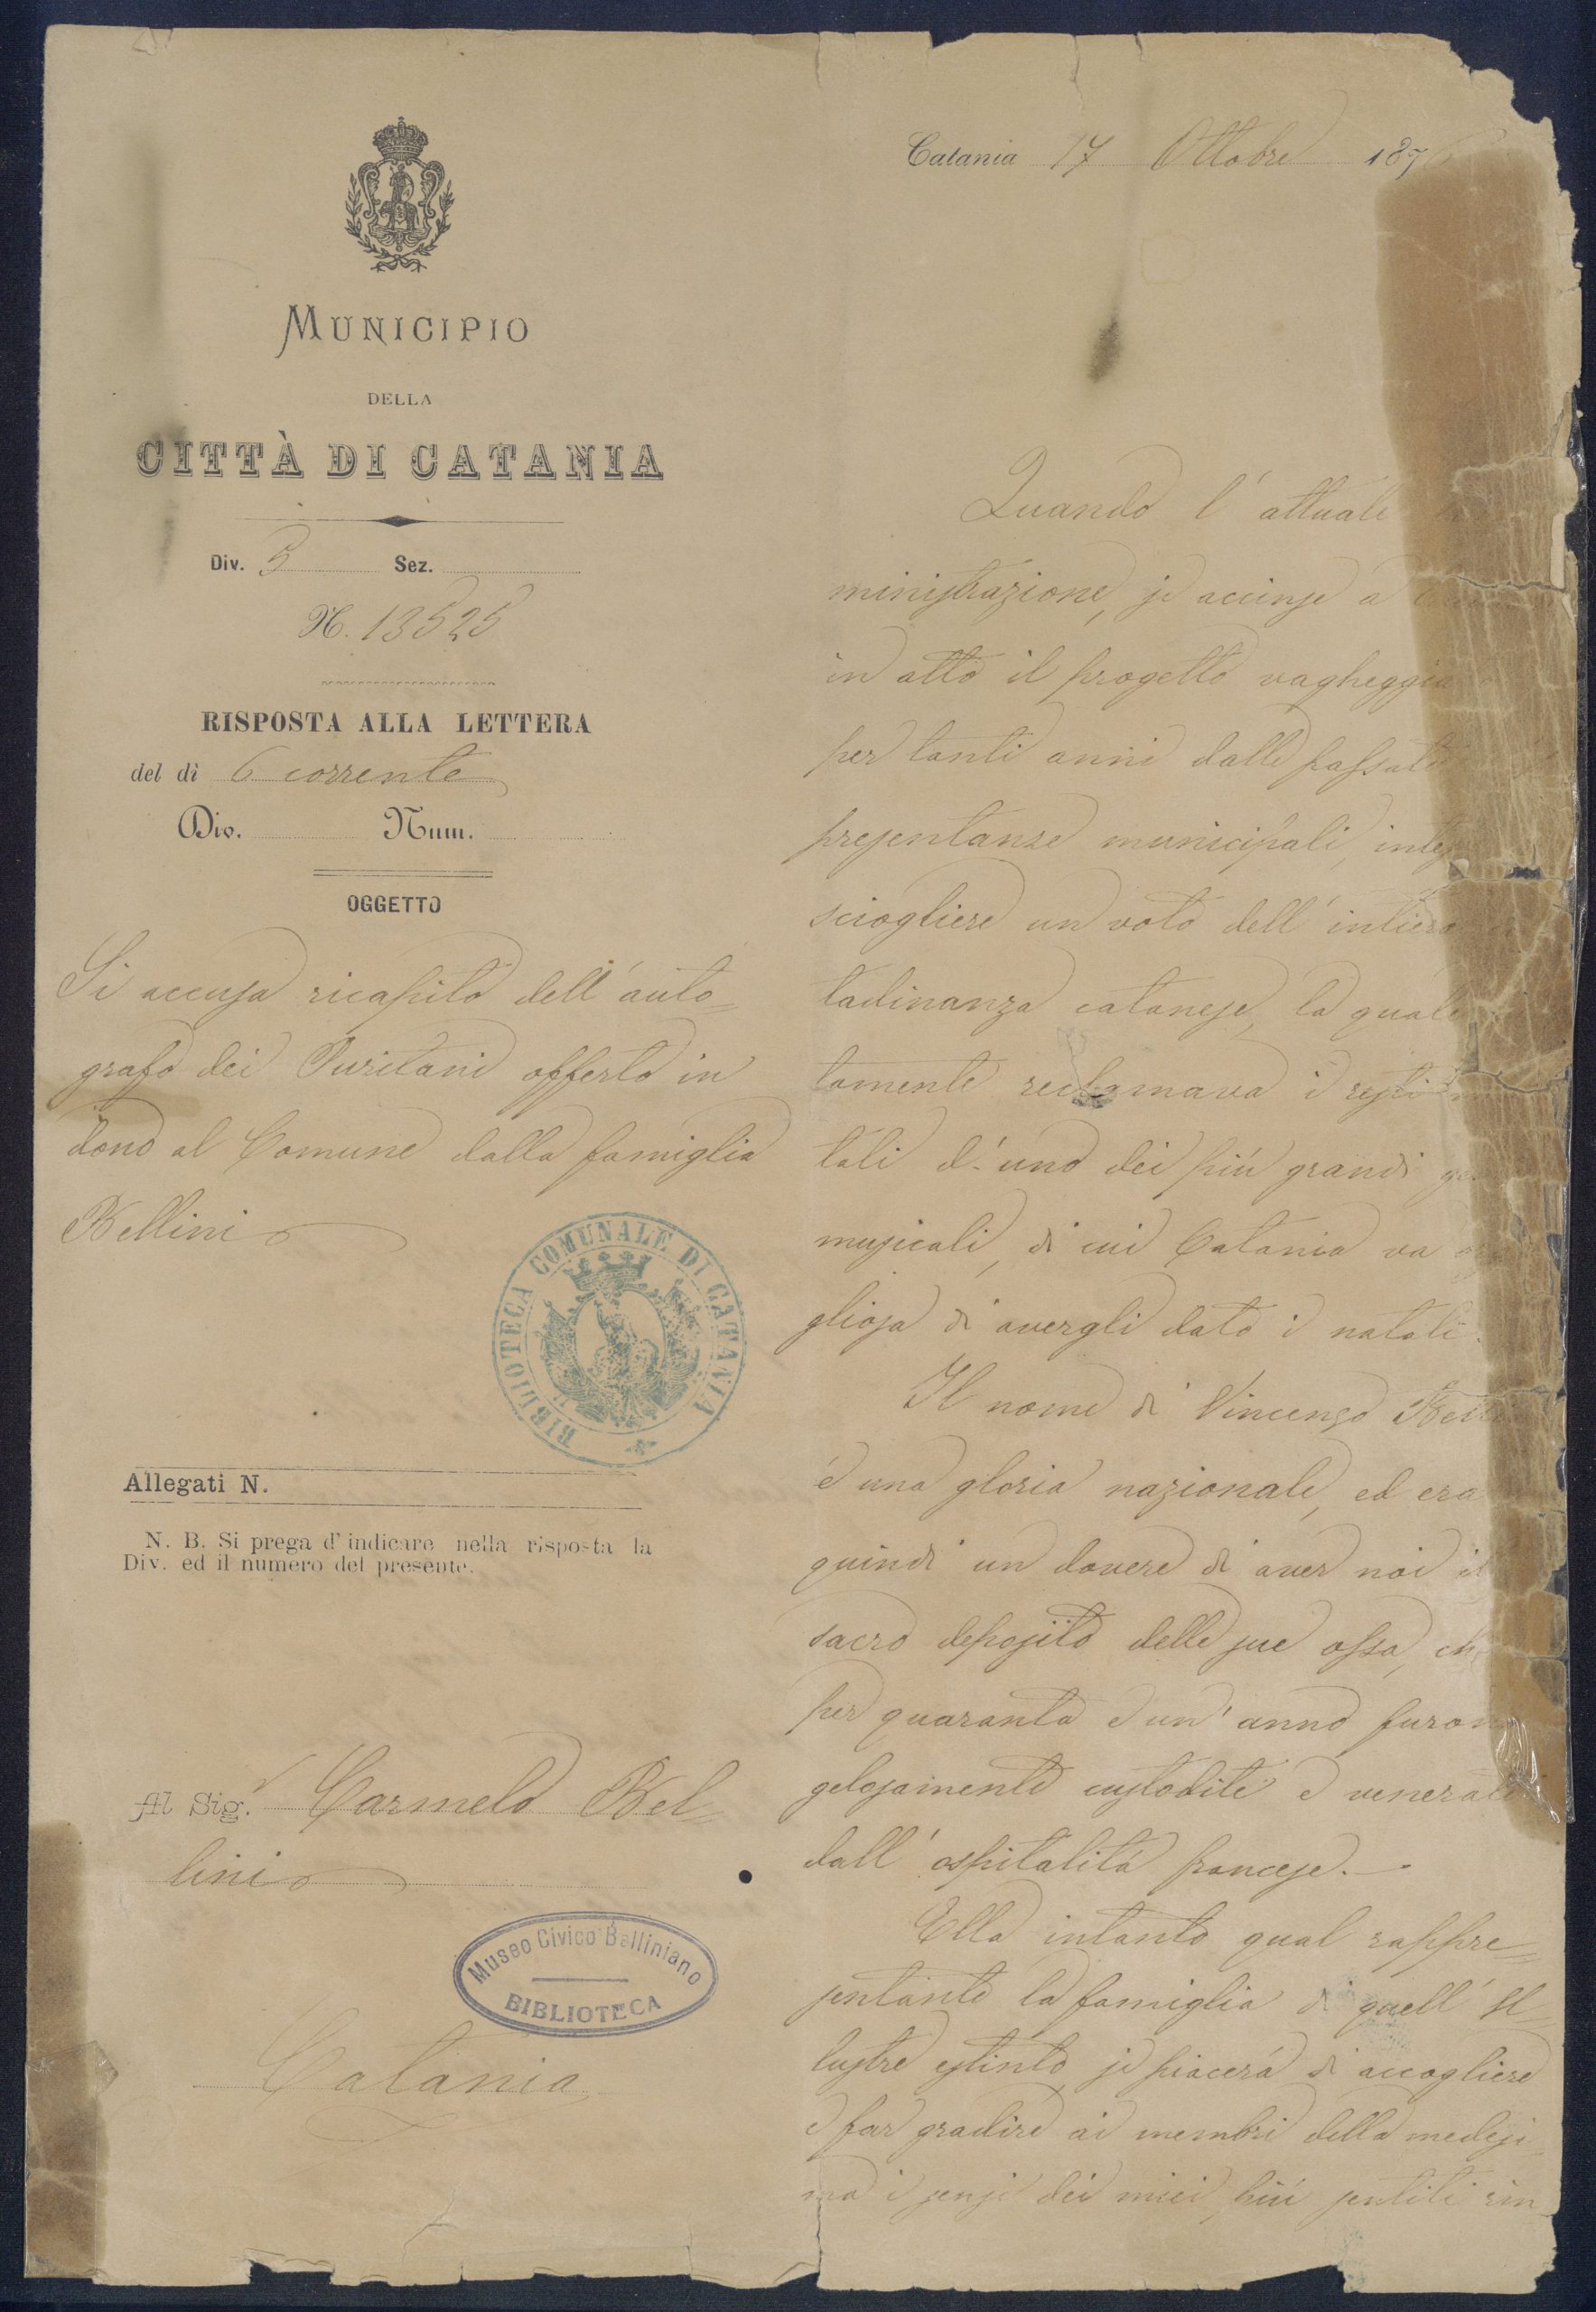 MUNICIPIO
DELLA
CITTÀ DI CATANIA
Div. 3 Sez.
N. 13525
RISPOSTA ALLA LETTERA
del dì 6 corrente
Div. Num.
OGGETTO
Si accusa ricapito dell'auto=
grafo dei Puritani offerto in
dono al Comune dalla famiglia
Bellini
BIBLIOTECA COMUNALE DI CATANIA
Allegati N.
N. B. Si prega d'indicare nella risposta la
Div. ed il numero del presente.
Al Sig.r Carmelo Bel=
lini
Museo Civico Belliniano
BIBLIOTECA
Catania
Catania 17 Ottobre 1876
Quando l'attuale
ministrazione, si accinse a
in atto il progetto vagheggia
per tanti anni dalle passate
presentanze municipali, inte
sciogliere un voto dell'intiera
tadinanza catanese, la quale
tamente reclamava i resti
tali d'uno dei più grandi ge
musicali, di cui Catania va
gliosa di avergli dato i natali.
Il nome di Vincenzo Belli
è una gloria nazionale, ed era
quindi un dovere di aver noi il
sacro deposito delle sue ossa, che
per quaranta e un'anno furon
gelosamente custodite e venerate
dall'ospitalità francese.—
Ella intanto qual rappre=
sentante la famiglia di quell'Il=
lustre estinto, si piacerà di accogliere
e far gradire ai membri della medesi
ma i sensi dei miei più sentiti rin